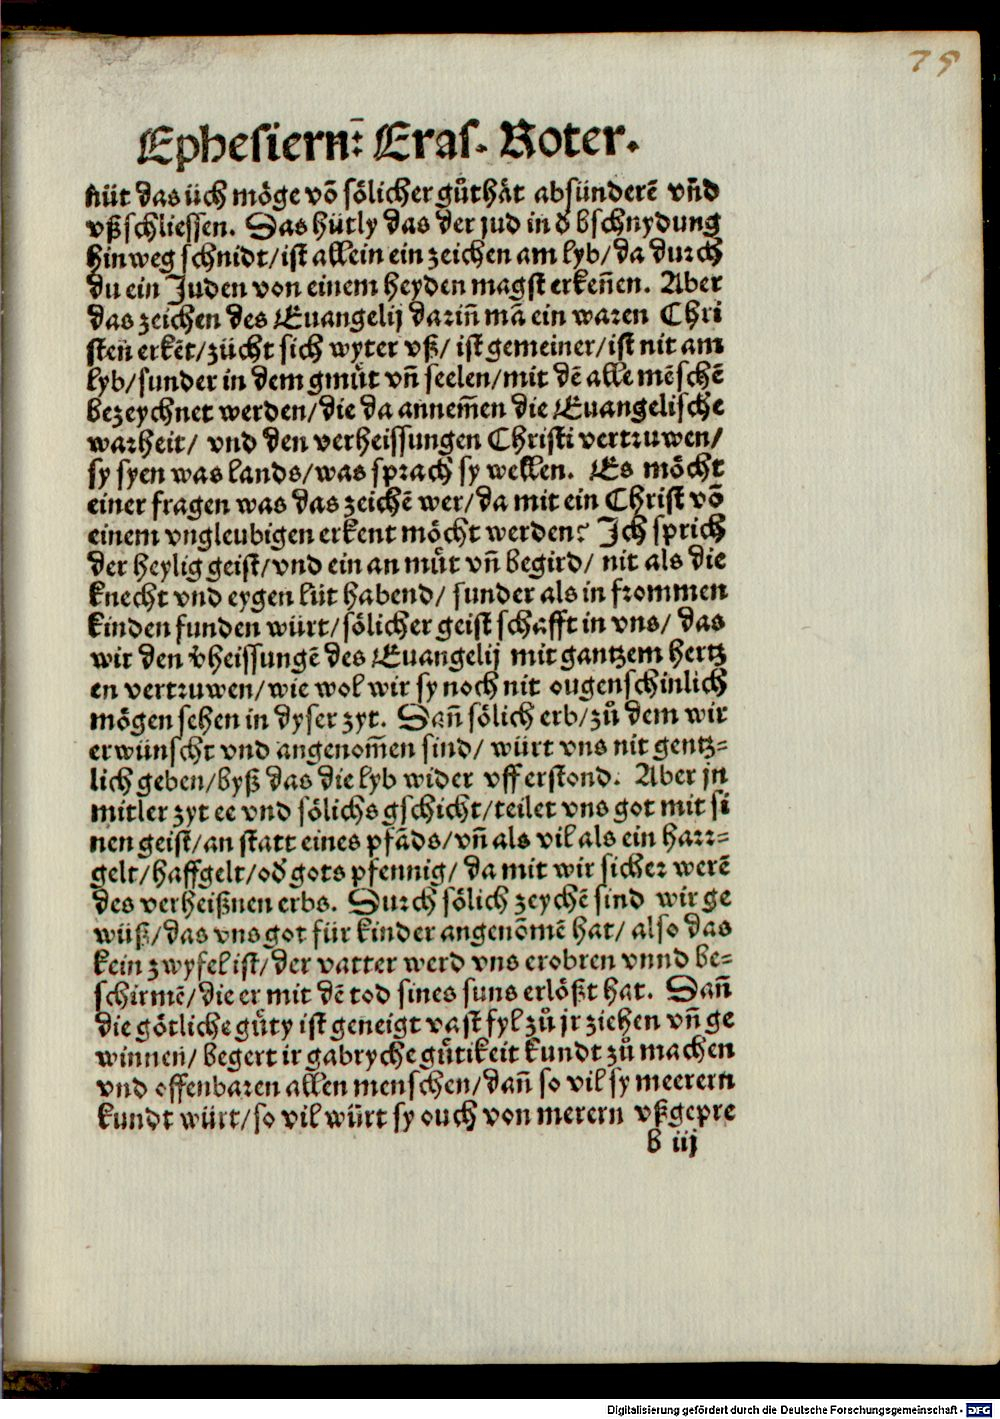 75
Ephesiern: Eras. Roter.
nüt das üch möge võ sölicher gůthät absünderẽ vñd
vßschliessen. Das hütly das der jud in d̕ bschnydung
hinweg schnidt/ist allein ein zeichen am lyb/da durch
du ein Juden von einem heyden magst erkeñen. Aber
das zeichen des Euangelij dariñ mã ein waren Chri
steñ erkẽt/zücht sich wyter vß/ ist gemeiner/ist nit am
lyb/sunder in dem gmüt vñ seelen/mit dẽ alle mẽschẽ
bezeychnet werden/die da annem̃en die Euangelische
warheit/ vnd den verheissungen Christi vertruwen/
sy syen was lands/was sprach sy wellen. Es möcht
einer fragen was das zeichẽ wer/da mit ein Christ võ
einem vngleubigen erkent möcht werden? Ich sprich
der heylig geist/vnd ein an müt vñ begird/ nit als die
knecht vnd eygen lüt habend/ sunder als in frommen
kinden funden würt/sölicher geist schafft in vns/ das
wir den v̕heissungẽ des Euangelij mit gantzem hertz
en vertruwen/wie wol wir sy noch nit ougenschinlich
mögen sehen in dyser zyt. Dañ sölich erb/zů dem wir
erwünscht vnd angenom̃en sind/ würt vns nit gentz=
lich geben/byß das die lyb wider vfferstond. Aber jn
mitler zyt ee vnd sölichs gschicht/teilet vns got mit si
nen geist/an statt eines pfãds/vñ als vil als ein harr=
gelt/hafftgelt/od̕ gots pfennig/ da mit wir sicher werẽ
des verheißnen erbs. Durch sölich zeychẽ sind wir ge
wüß/das vns got für kinder angenõmẽ hat/ also das
kein zwyfel ist/der vatter werd vns erobren vnnd be=
schirmẽ/die er mit dẽ tod sines suns erlößt hat. Dañ
die götliche gůty ist geneigt vast fyl zů jr ziehen vñ ge
winnen/ begert ir gabryche gůtikeit kundt zů machen
vnd offenbaren allen menschen/dañ so vil sy meerern
kundt würt/so vil würt sy ouch von merern vßgepre
b iij
Digitalisierung gefördert durch die Deutsche Forschungsgemeinschaft - DFG